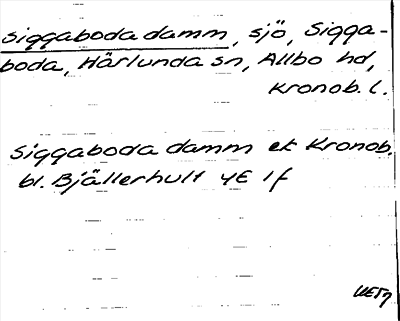 Siggaboda damm, sjö, Sigga-
boda, Härlunda sn, Allbo hd,
Kronob. l.
Siggaboda damm ek Kronob.
bl. Bjällerhult 4E 1f